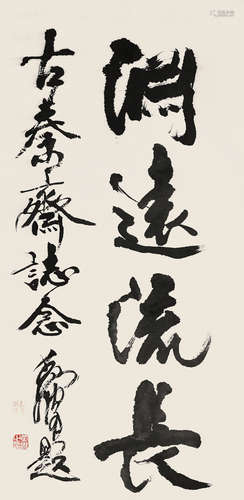 淵遠流長
古秦齋誌念
題